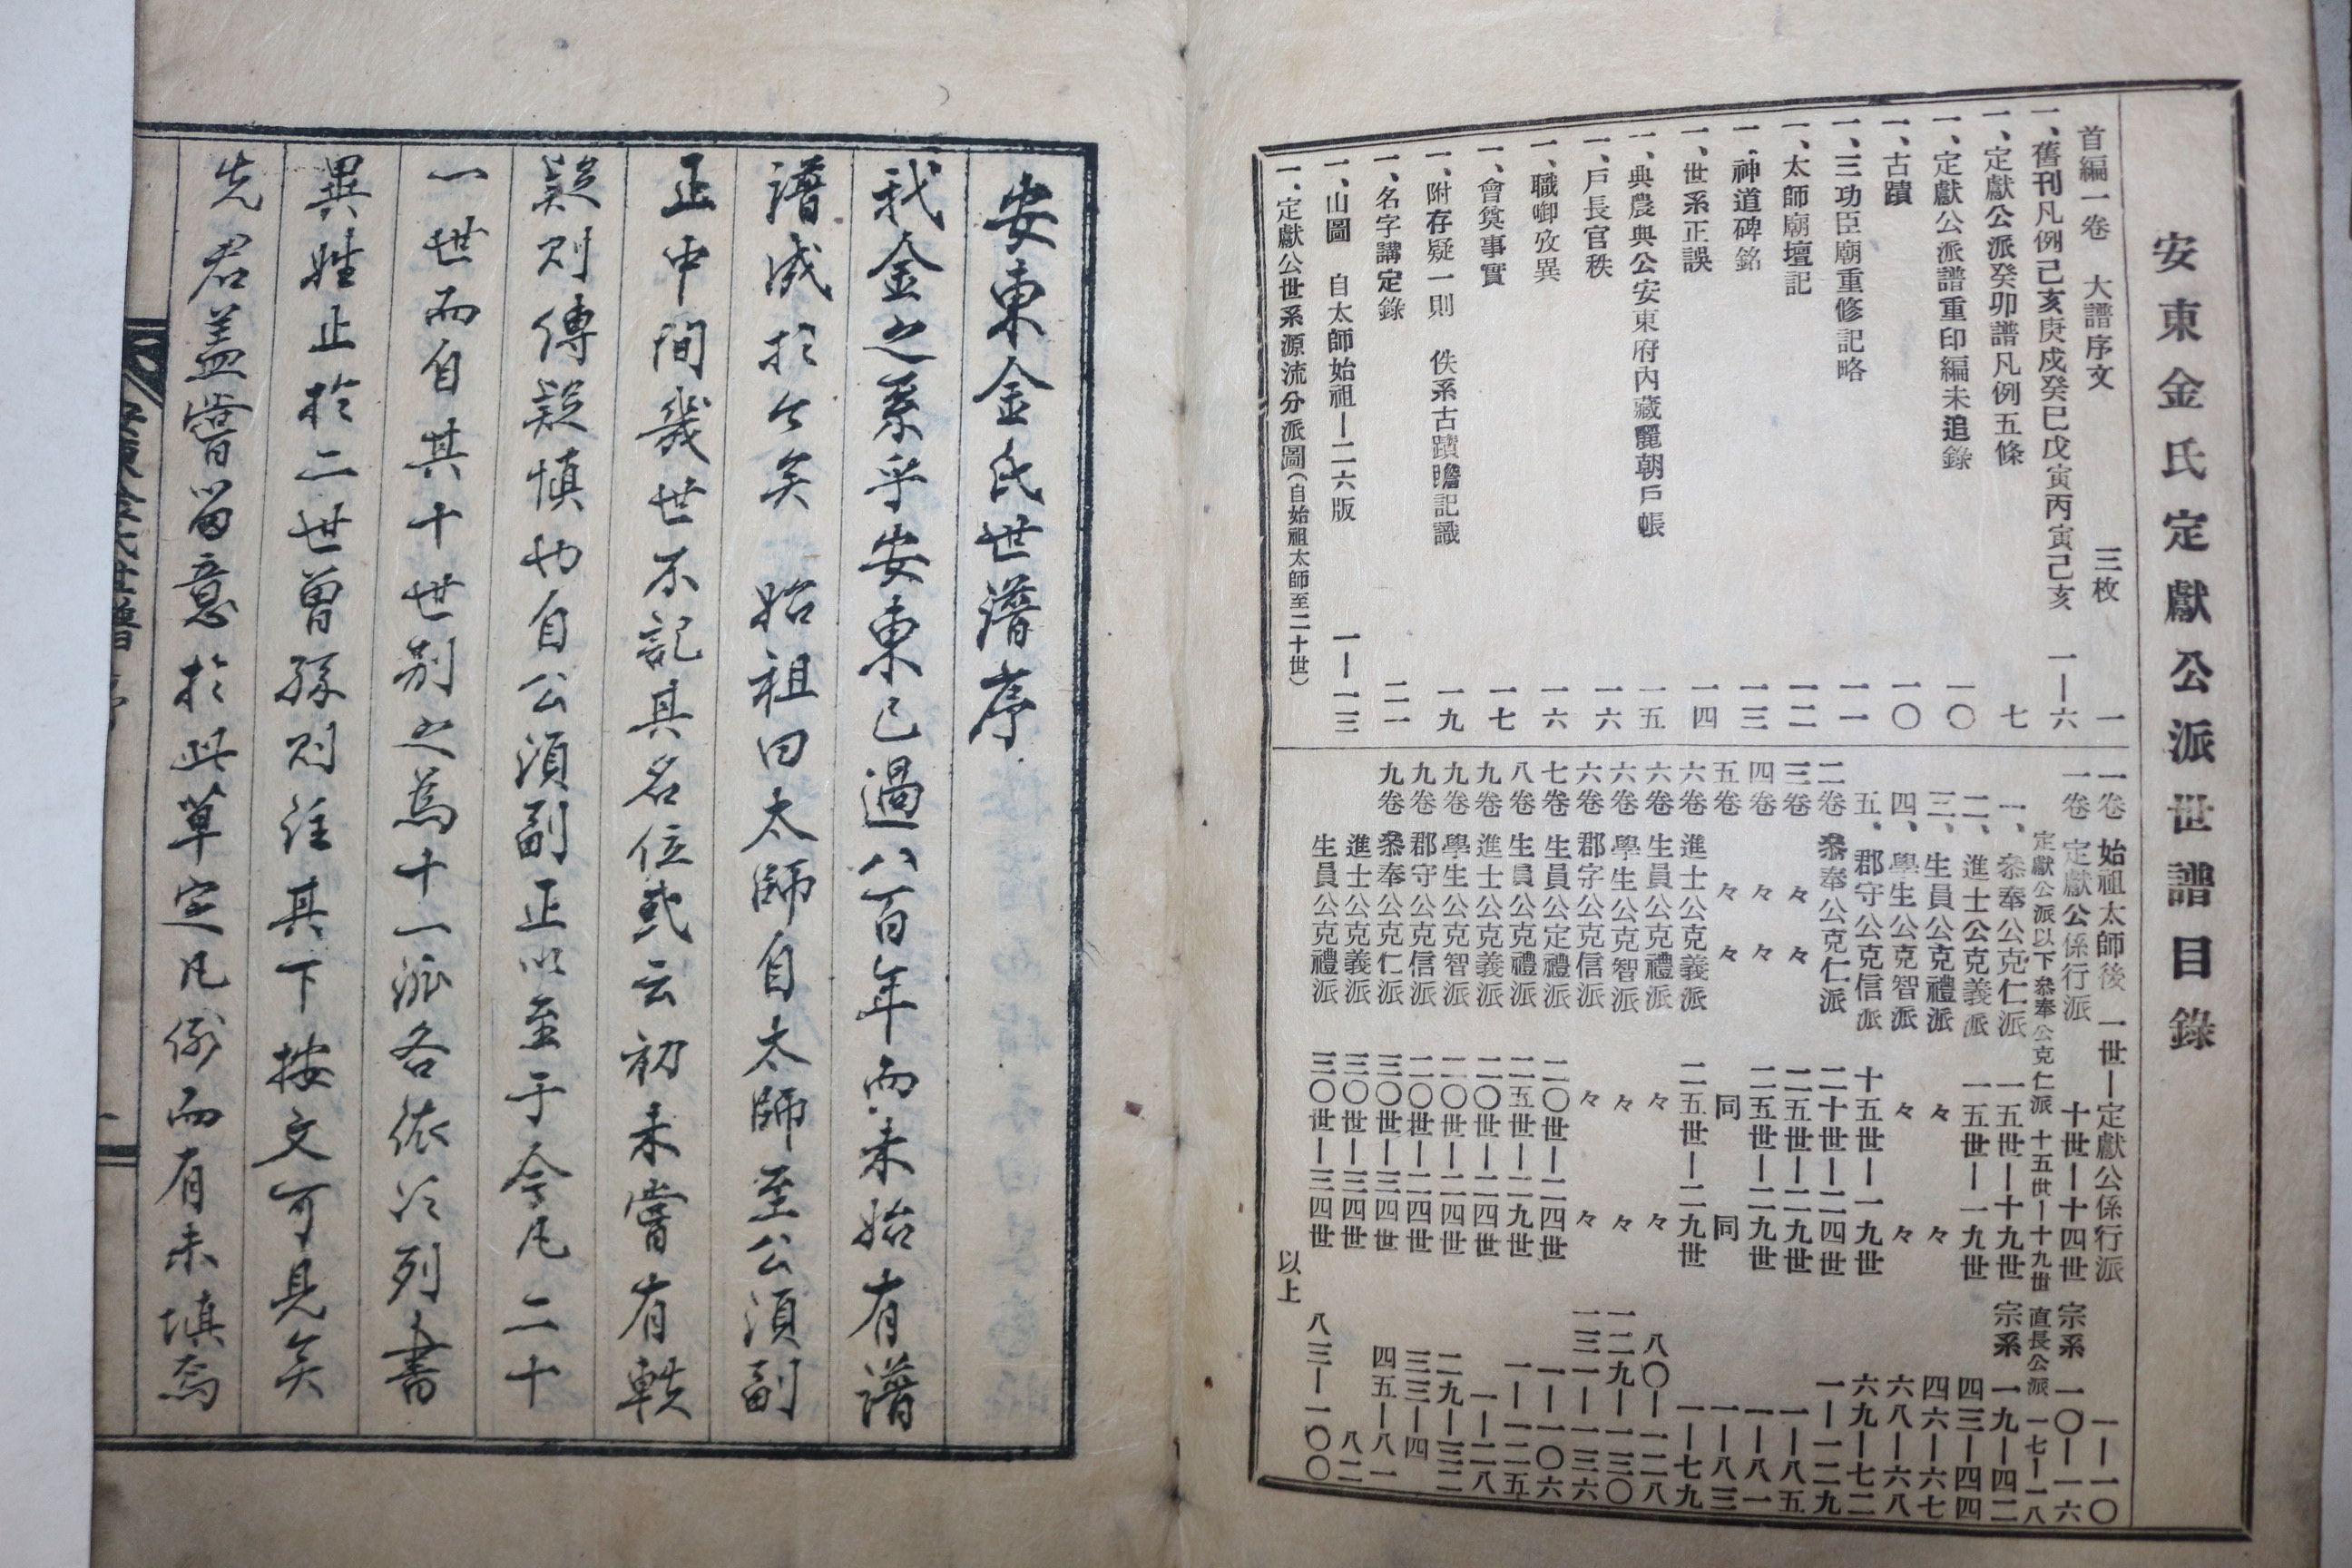 安東金氏定獻公派世譜目錄
首編一卷 大譜序文 三枚 一
一、舊刊凡例己亥庚戍癸巳戊寅丙寅己亥 一—六
一、定獻公派癸卯譜凡例五條 七
一、定獻公派譜重印編未追錄 一〇
一、古蹟 一〇
一、三功臣廟重修記略 一一
一、太師廟壇記 一二
一、神道碑銘 一三
一、世系正誤 一四
一、典農典公安東府內藏麗朝戶帳 一五
一、戶長官秩 一六
一、職啣攷異 一六
一、會奠事實 一七
一、附存疑一則 佚系古蹟瞻記識 一九
一、名字講定錄 二一
一、山圖 自太師始祖—二六版 一—一三
一、定獻公世系源流分派圖(自始祖太師至二十世)
一卷 始祖太師後 一世—定獻公係行派 一—一〇
一卷 定獻公係行派 十世—十四世 宗系 一〇—一六
定獻公派以下叅奉公克仁派 十五世—十九世 直長公派 一七—一八
一、叅奉公克仁派 一五世—十九世 宗系 一九—四二
二、進士公克義派 一五世—一九世 四三—四四
三、生員公克禮派 々 々 四六—六七
四、學生公克智派 々 々 六八—六八
五、郡守公克信派 十五世—一九世 六九—七二
二卷 叅奉公克仁派 二十世—二四世 一—一二九
三卷 々 々 二五世—二九世 一—八五
四卷 々 々 二五世—二九世 一—八一
五卷 々 々 同 同 一—八三
六卷 進士公克義派 二五世—二九世 一—七九
六卷 生員公克禮派 々 々 八〇—一二八
六卷 學生公克智派 々 々 一二九—一三〇
六卷 郡守公克信派 々 々 一三一—一三六
七卷 生員公定禮派 二〇世—二四世 一—一〇六
八卷 生員公克禮派 二五世—二九世 一—一二五
九卷 進士公克義派 二〇世—二四世 一—二八
九卷 學生公克智派 二〇世—二四世 二九—三二
九卷 郡守公克信派 二〇世—二四世 三三—四
九卷 叅奉公克仁派 三〇世—三四世 四五—八一
進士公克義派 三〇世—三四世 八二
生員公克禮派 三〇世—三四世 八三—一〇〇
以上
安東金氏世譜序
我金之系乎安東已過八百年而未始有譜
譜成於今矣 始祖曰太師自太師至公須副
正中間幾世不記其名位或云初未嘗有軼
疑則傳疑愼也自公須副正以至于今凡二十
一世而自其十世別之爲十一派各依次列書
異姓止於二世曾孫則註其下按文可見矣
先君盖嘗留意於此草定凡例而有未塡焉